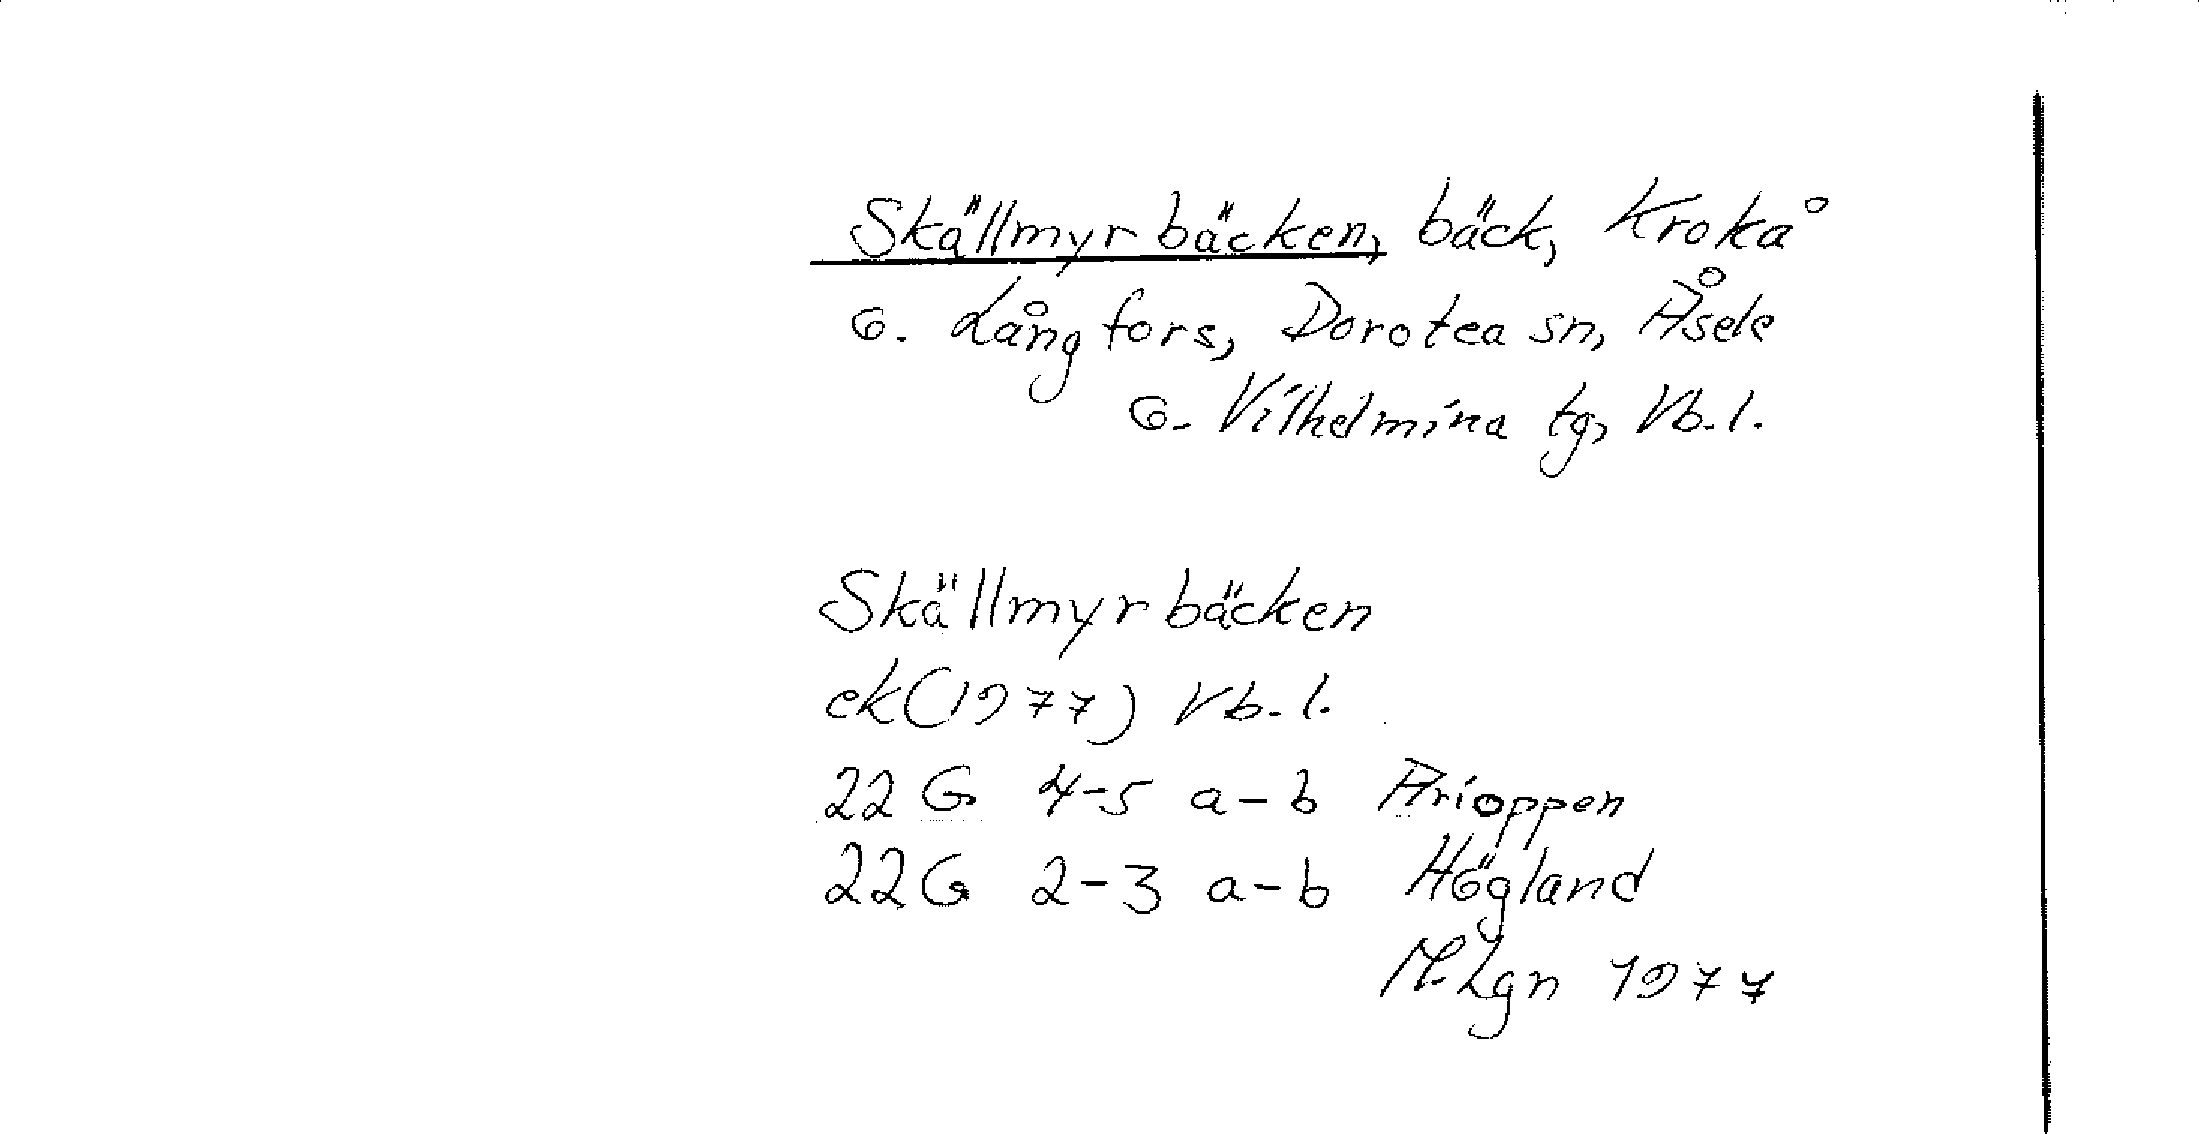 Skällmyrbäcken, bäck, Krokå
o. Långfors, Dorotea sn, Åsele
o. Vilhelmina tg, Vb.l.
Skällmyrbäcken
ek(1977) Vb.l.
22 G 4-5 a-b Arioppen
22G 2-3 a-b Högland
M.Lgn 1977